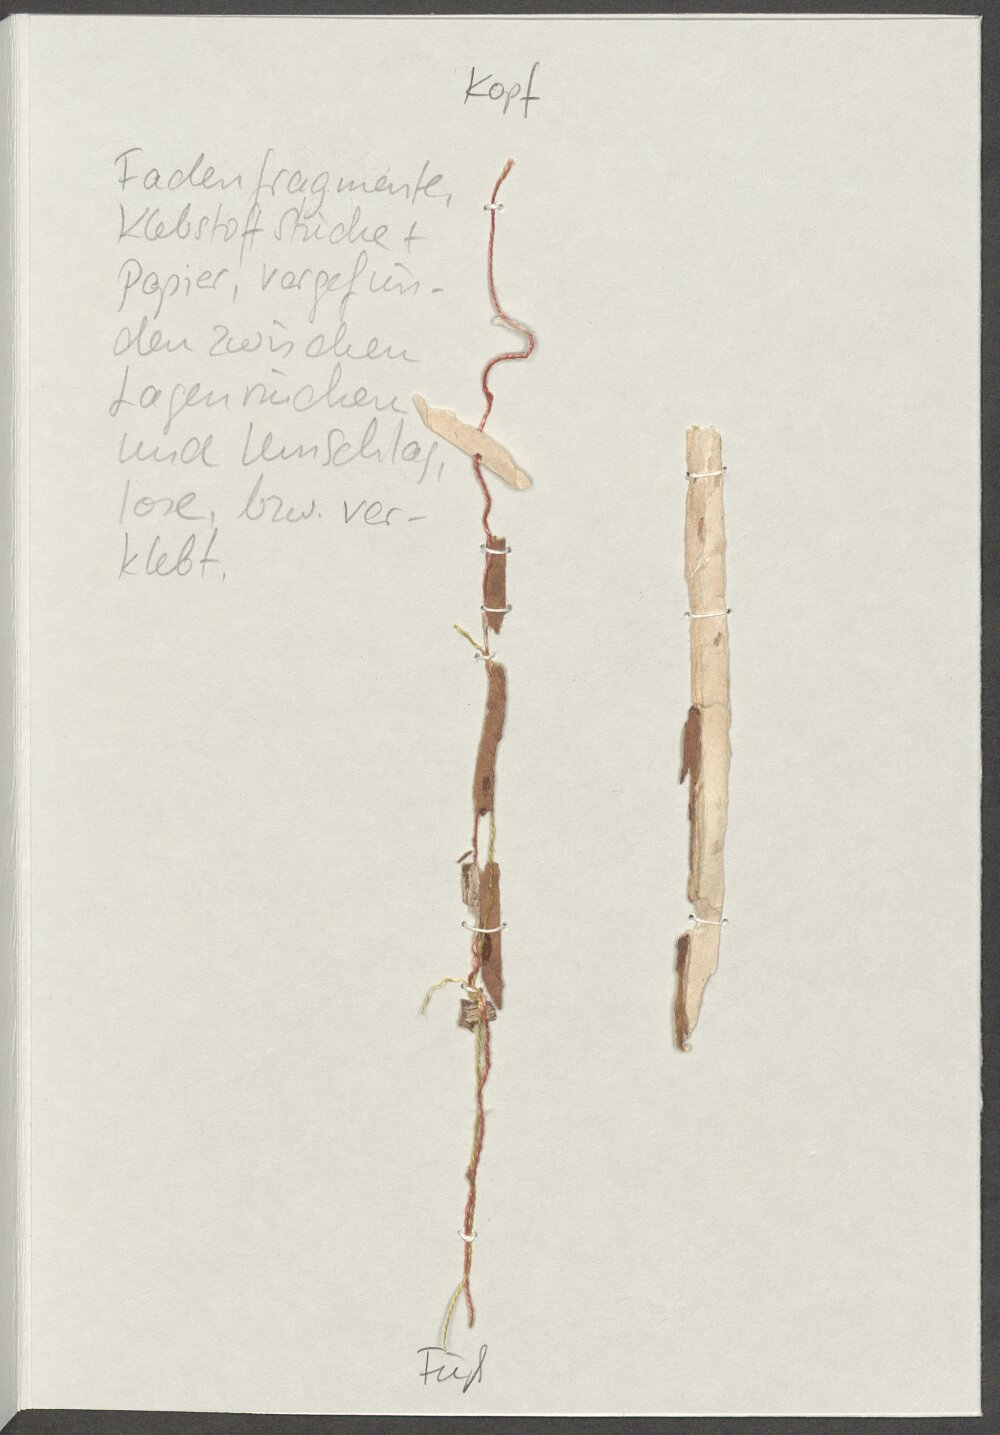 Kopf
Fadenfragmente,
Klebstoffstücke +
Papier, vorgefun-
den zwischen
Lagenrücken
und Umschlag,
lose, bzw. ver-
klebt.
Fuß